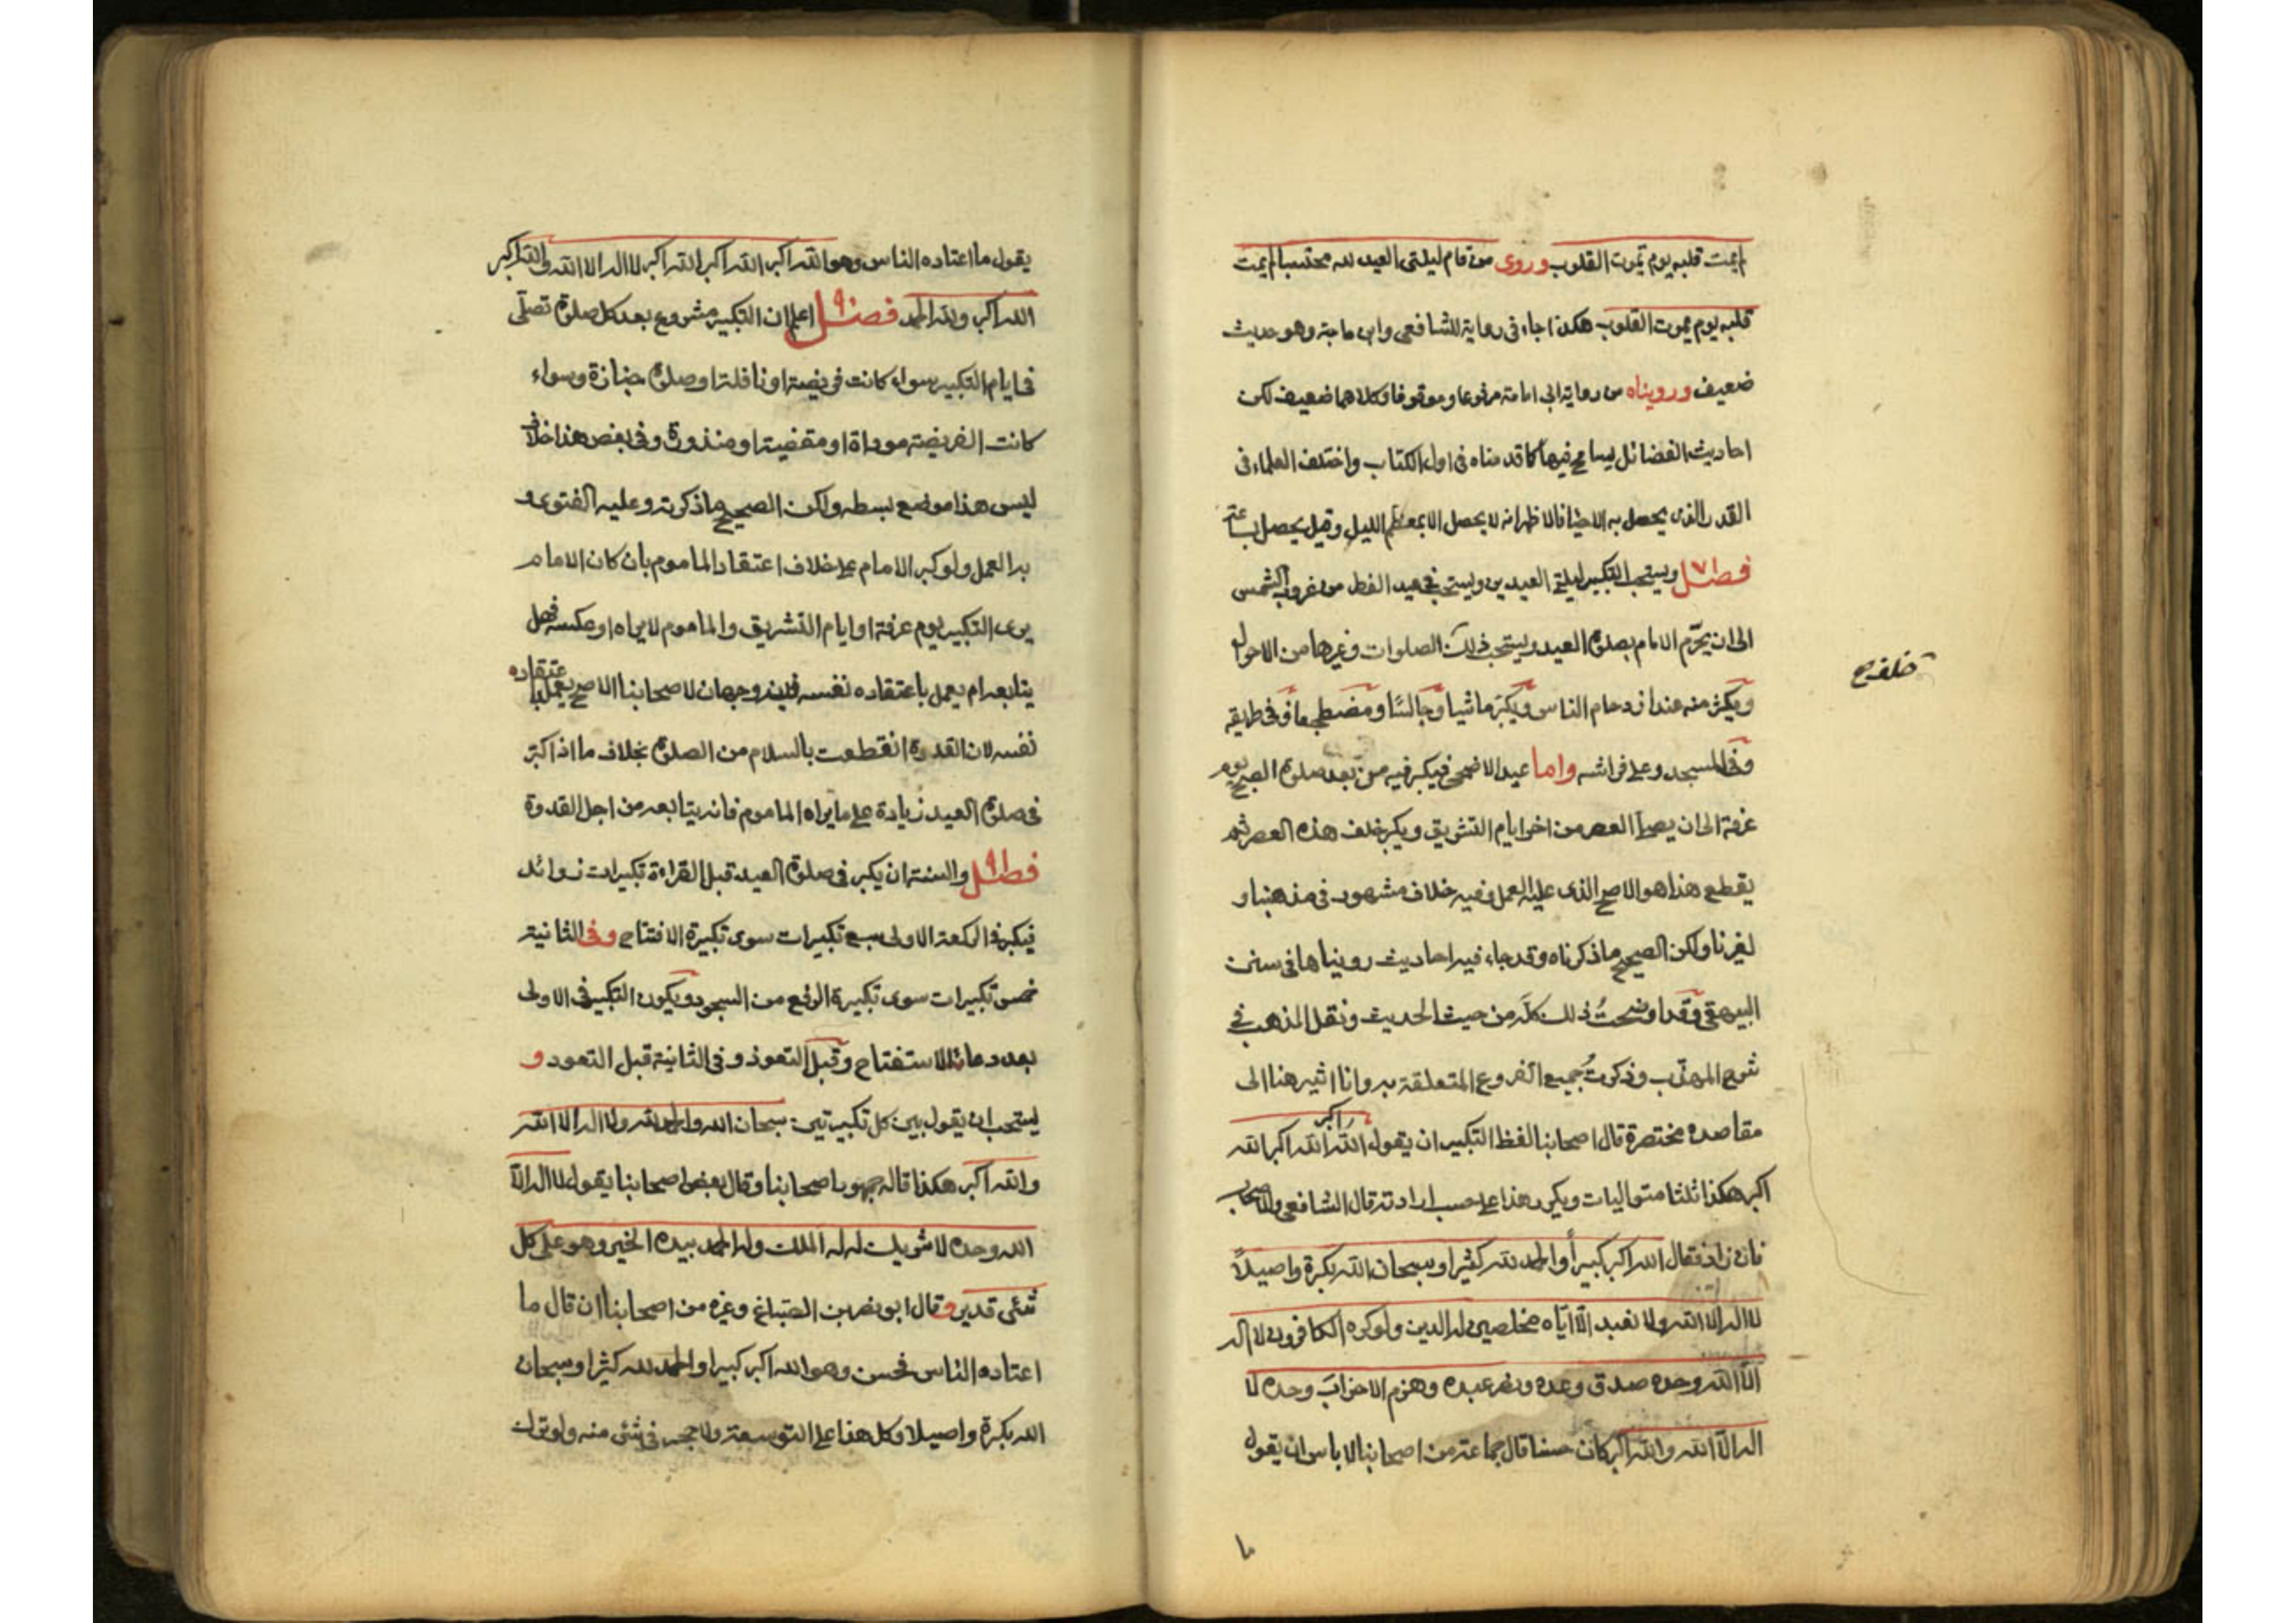 لم يمت قلبه يوم تموت القلوب وروى من قام ليلتى العيد لله محتسبا لم يمت
قلبه يوم يموت القلوب هكذا جاء فى رواية للشافعى وابن ماجة وهو حديث
ضعيف ورويناه من رواية ابى امامة مرفوعا وموقوفا وكلاهما ضعيف لكن
احاديث الفضائل يسامح فيها كما قدمناه فى اول الكتاب واختلف العلماء فى
القدر الذى يحصل به الاحيا فالاظهر انه لا يحصل الا بمعظم الليل وقيل يحصل بساعة
فصل ويستحب التكبير ليلتى العيدين ويستحب فى عيد الفطر من غروب الشمس
الى ان يحرّم الامام بصلوة العيد ويستحب ذلك الصلوات وغيرها من الاحوال
خلف
ويكثر منه عند ازدحام الناس ويكبّر ماشيا وجالسًا ومضطجعا وفى طريقه
وفى المسجد وعلى فراشه واما عيد الاضحى فيكبر فيه من بعد صلوة الصبح يوم
عرفة الى ان يصلى العصر من اخر ايام التشريق ويكبر خلف هذه العصر ثم
يقطع هذا هو الاصح الذى عليه العمل وفيه خلاف مشهور فى مذهبنا و
لغيرنا ولكن الصحيح ما ذكرناه وقد جاء فيه احاديث رويناها فى سنن
البيهقى وقد اوضحتُ ذلك كلّه من حيث الحديث ونقل المذهب فى
شرح المهذّب وذكرتُ جميع الفروع المتعلقة به وانا اشير هنا الى
مقاصده مختصرة قال اصحابنا لفظ التكبير ان يقول الله اكبر الله اكبر الله
اكبر هكذا ثلثا متواليات ويكرر هذا على حسب ارادته قال الشافعى والاصحاب
فان زاد فقال الله اكبر كبيرأ والحمد لله كثيرا وسبحان الله بكرة واصيلاً
لا اله الا الله ولا نعبد الّا ايّاه مخلصين له الدين ولو كره الكافرون لا اله
الّا الله وحده صدق وعده ونصر عبده وهزم الاحزابَ وحده لا
اله الّا الله والله اكبر كان حسنا قال جماعة من اصحابنا لا باس ان يقول
يقول ما اعتاده الناس وهو الله اكبر الله اكبر الله اكبر لا اله الا الله والله اكبر
الله اكبر ولله الحمد فصل اعلم ان التكبير مشروع بعد كل صلوة تصلّى
فى ايام التكبير سواء كانت فريضة او نافلة او صلوة جنازة وسواء
كانت الفريضة موداة او مقضية او منذورة وفى بعض هذا خلاف
ليس هذا موضع بسطه ولكن الصحيح ما ذكرته وعليه الفتوى و
به العمل ولو كبر الامام على خلاف اعتقاد الماموم بان كان الامام
يرى التكبير يوم عرفة او ايام التشريق والماموم لا يراه او عكسه فهل
يتابعه ام يعمل باعتقاده نفسه فيه وجهان لاصحابنا الاصح يعمل باعتقاده
نفسه لان القدوة انقطعت بالسلام من الصلوة بخلاف ما اذا كبّر
فى صلوة العيد زيادة على ما يراه الماموم فانه يتابعه من اجل القدوة
فصل والسنة ان يكبر فى صلوة العيد قبل القراءة تكبيرات زوائد
فيكبر فى الركعة الاولى سبع تكبيرات سوى تكبيرة الافتتاح وفى الثانية
خمس تكبيرات سوى تكبيرة الرفع من السجود ويكون التكبير فى الاولى
بعد دعاء الاستفتاح وقبل التعوذ وفى الثانية قبل التعود و
يستحب ان يقول بين كل تكبيرتين سبحان الله والحمد لله ولا اله الا الله
والله اكبر هكذا قاله جمهور اصحابنا وقال بعض اصحابنا يقول لا اله الّا
الله وحده لا شريك له له الملك وله الحمد بيده الخير وهو على كل
شئى قدير وقال ابو نصر بن الصّباغ وغيره من اصحابنا ان قال ما
اعتاده الناس فحسن وهو الله اكبر كبيرا والحمد لله كثيرا وسبحان
الله بكرة واصيلا وكل هذا على التوسعة ولا حجر فى شئى منه ولو ترك